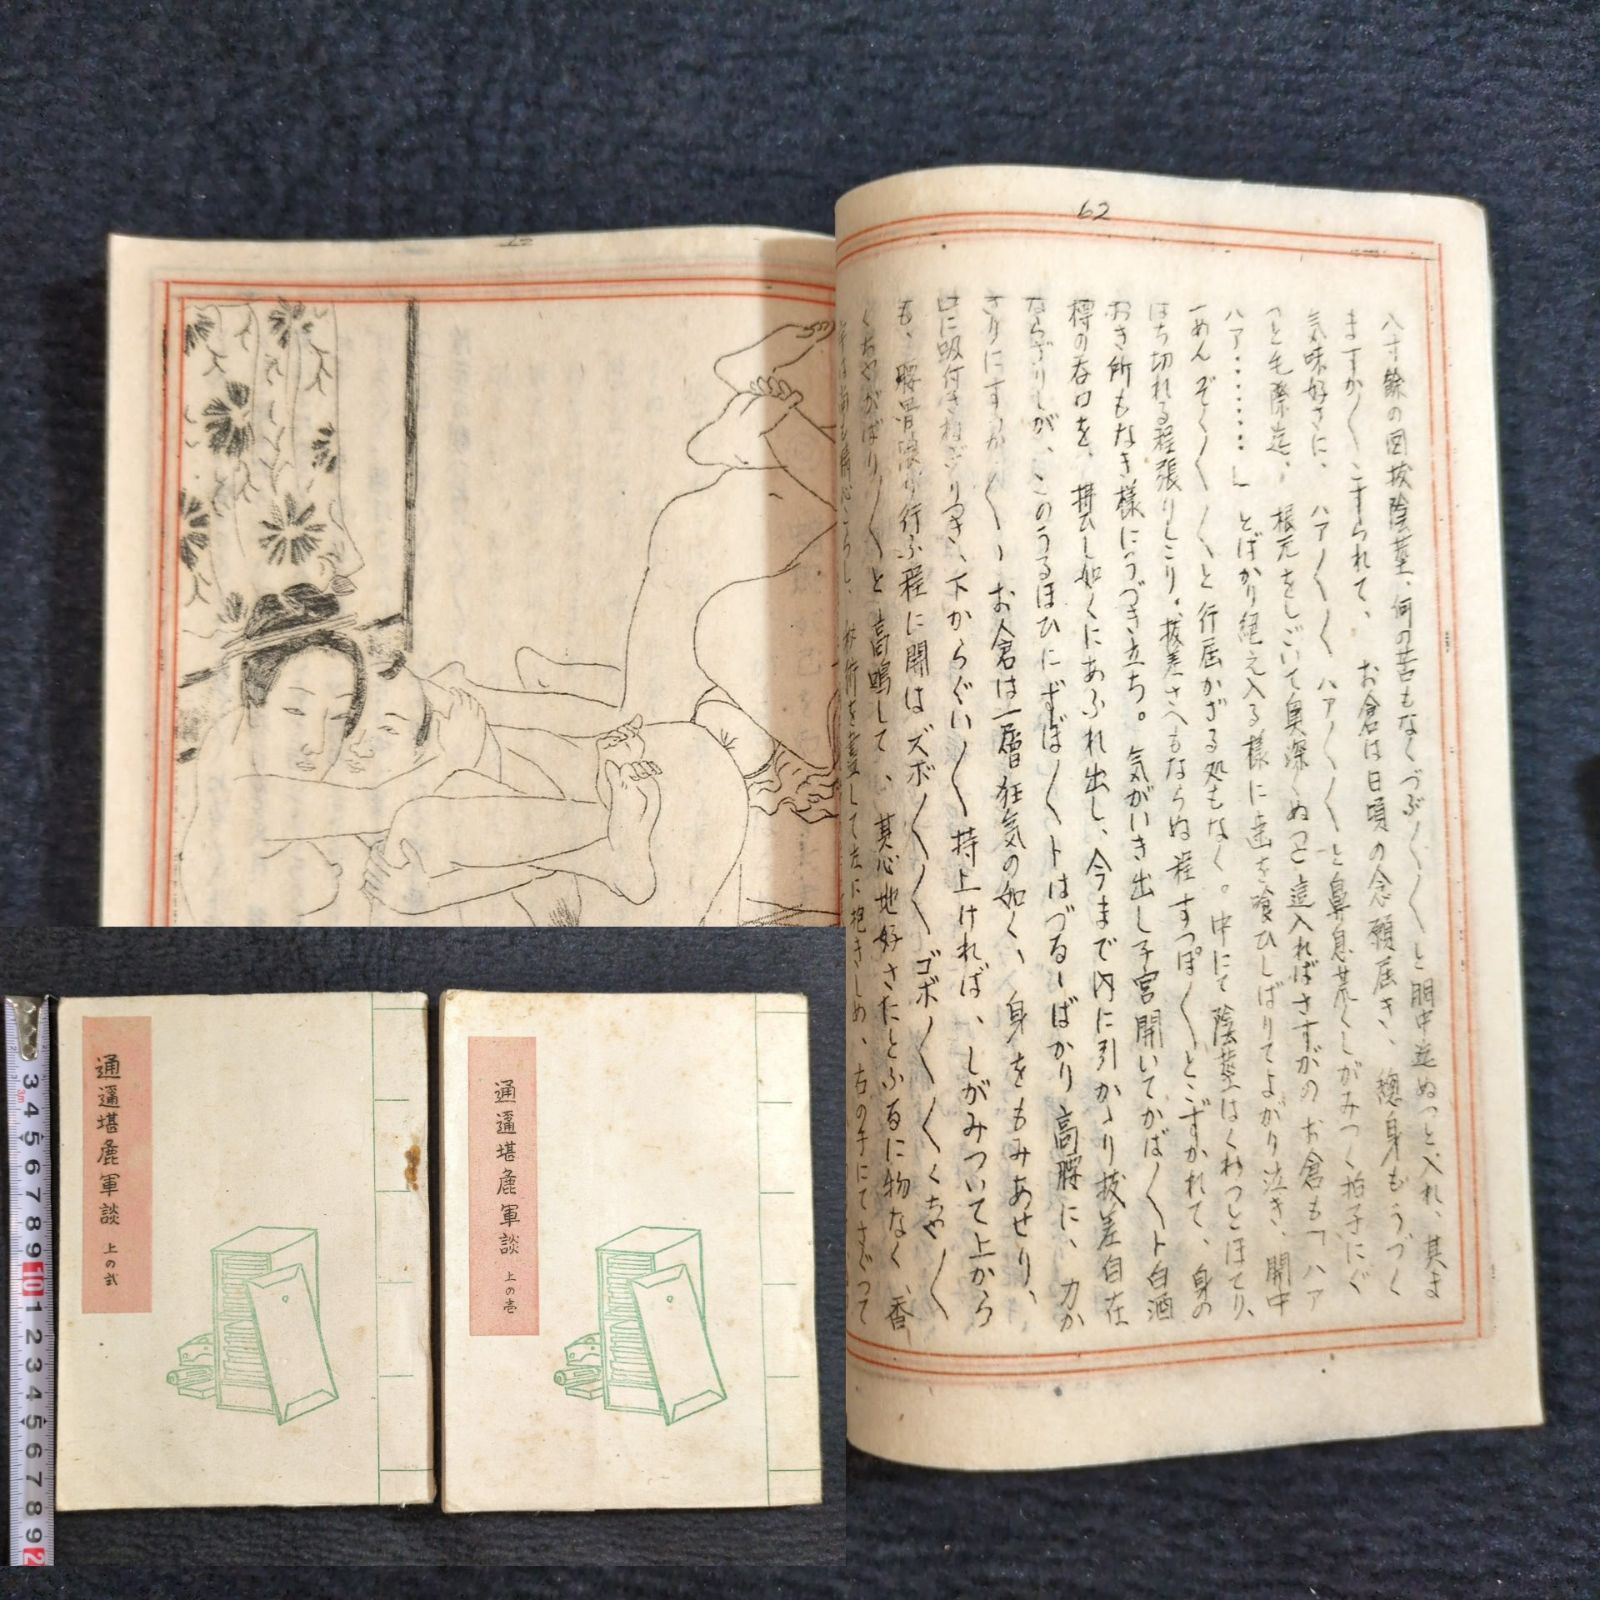 62
八寸餘の図抜陰莖、何の苦もなくづぶ〱〱と胴中迄ぬっと入れ、其ま
ますか〱こすられて、お倉は日頃の念願届き、總身もうづく
気味好さに、ハア〱〱ハア〱〱と鼻息荒くしがみつく拍子にぐ
っと毛際迄、根元をしごいて奥深くぬっと這入ればさすがのお倉も「ハア
ハア………」とばかり絶え入る様に歯を喰ひしばりてよがり泣き、開中
一めんぞく〱〱と行届かざる処もなく。中にて陰莖はくわっとほてり、
はち切れる程張りしこり。抜差さへもならぬ程すっぽ〱とこずかれて、身の
おき所もなき様にうづき立ち。気がいき出し子宮開いてかば〱ト白酒
樽の呑口を、し如くにあふれ出し、今まで内に引かゝり抜差自在
ならざりしが、このうるほひにずぼ〱トはづるゝばかり高腰に、力か
ぎりにすっか〱、お倉は一層狂気の如く、身をもみあせり、
口に吸付きねぶりつき、下からぐい〱持上ければ、しがみついて上から
も、腰骨限り行ふ程に開はズボ〱〱ゴボ〱〱くちや〱
くちやがばり〱と高鳴して、其心地好さたとふるに物なく、香
を盡して左に抱きしめ、右の手にてさぐって
通邇堪麁軍談 上の弐
通邇堪麁軍談 上の壱
3 4 5 6 7 8 9 10 1 2 3 4 5 6 7 8 9 2
3m